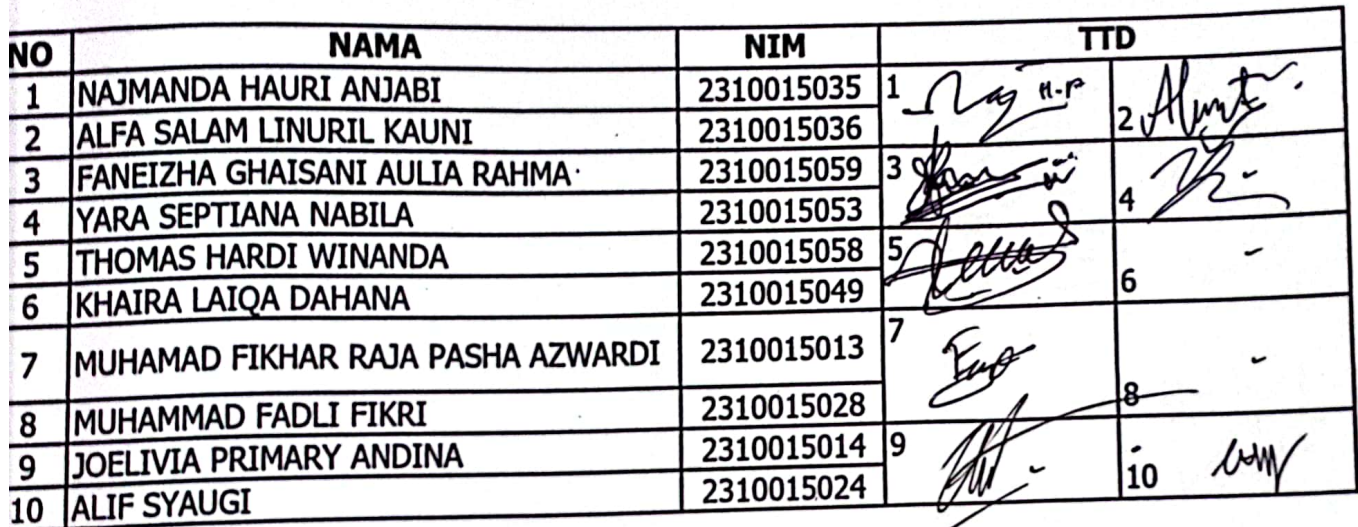 NO NAMA NIM TTD
1 NAJMANDA HAURI ANJABI 2310015035 1 H-P
2 ALFA SALAM LINURIL KAUNI 2310015036 2
3 FANEIZHA GHAISANI AULIA RAHMA 2310015059 3
4 YARA SEPTIANA NABILA 2310015053 4
5 THOMAS HARDI WINANDA 2310015058 5
6 KHAIRA LAIQA DAHANA 2310015049 6 -
7 MUHAMAD FIKHAR RAJA PASHA AZWARDI 2310015013 7
8 MUHAMMAD FADLI FIKRI 2310015028 8 -
9 JOELIVIA PRIMARY ANDINA 2310015014 9
10 ALIF SYAUGI 2310015024 10